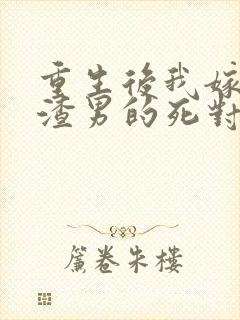 重生後我嫁
渣男的死對
簾卷朱樓